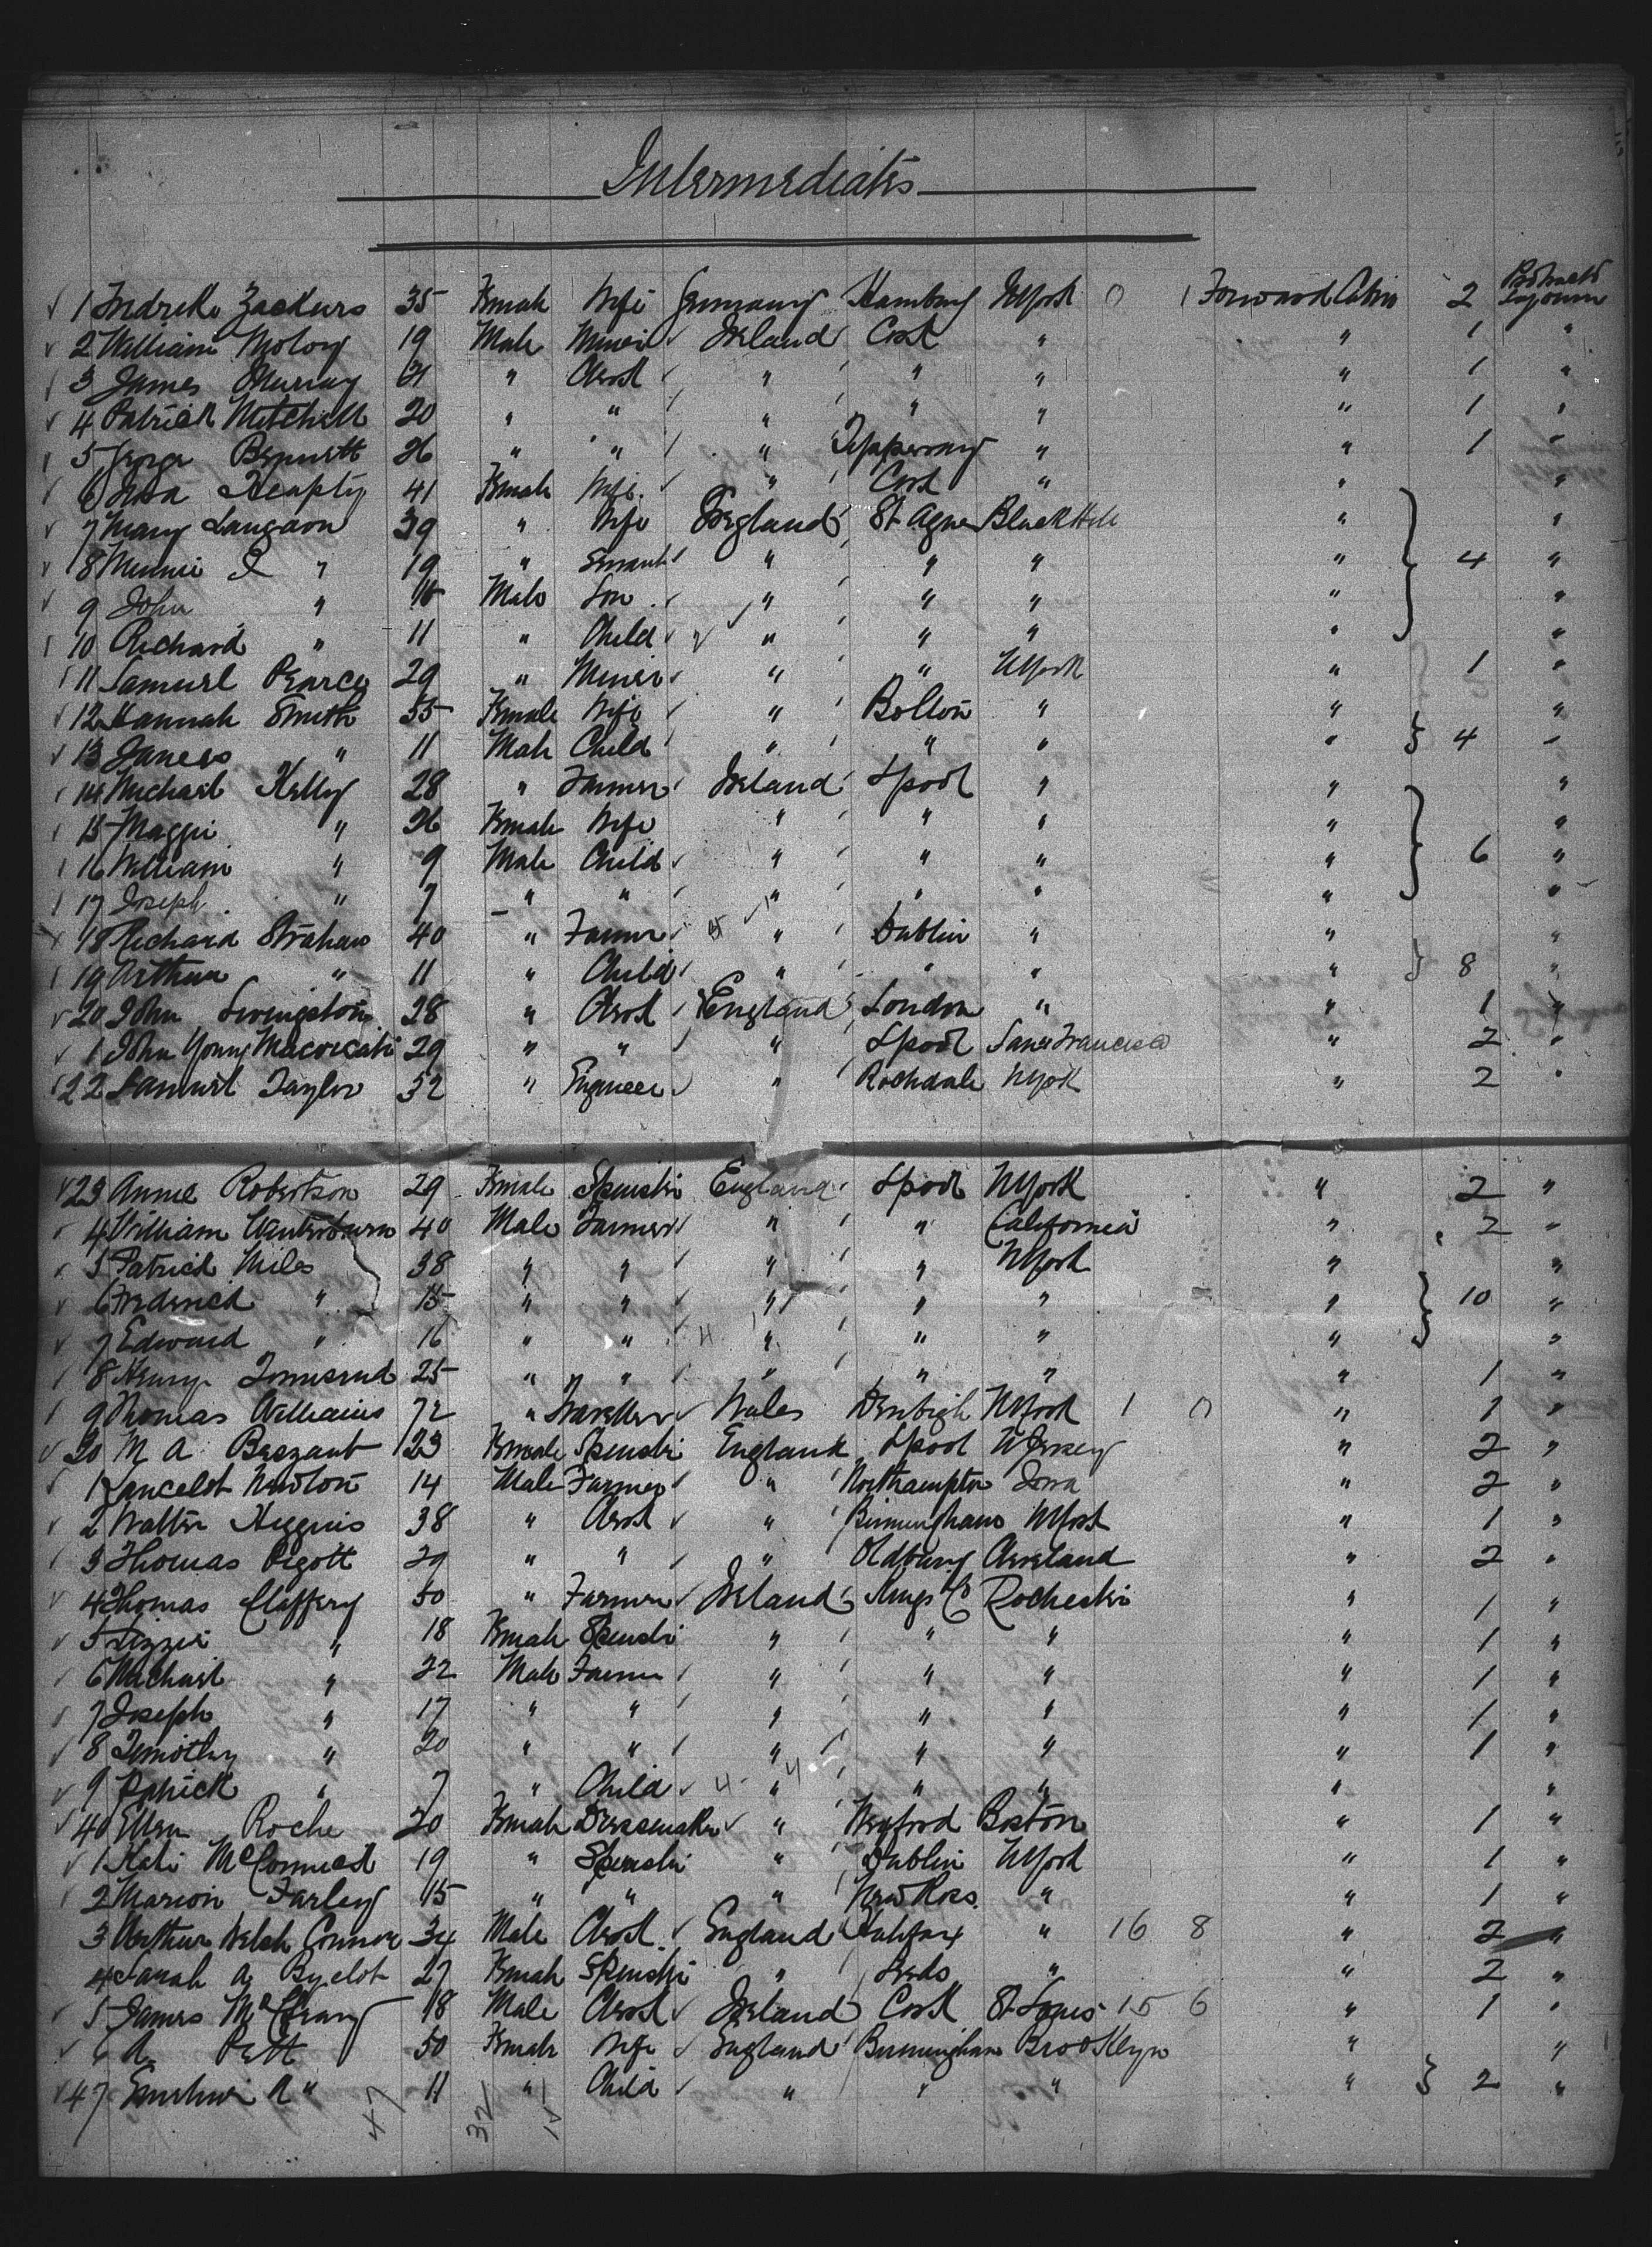 Intermediates
1 Zackurs 35 Female Wife Germany Hamburg NYork 0 1 Forward Cabin 2
2 William Moloy 19 Male Miner Ireland Cork " " 1 "
3 James Murray " Clerk " " " " 1 "
4 Patrick Mitchell 20 " " " " " " 1 "
5 Bennett 26 " " " Tipperary " " 1 "
6 Heaphy 41 Female Wife " Cork " " "
7 Mary Langdon 39 " Wife England St Agnes Black Hill " "
8 Minnie " 19 " Servant " " " " 4 "
9 John " 16 Male Son " " " " "
10 Richard " 11 " Child " " " " "
11 Samuel Pearce 29 " Miner " " NYork " 1 "
12 Hannah Smith 35 Female Wife " Bolton " " "
13 " 11 Male Child " " " " 4 "
14 Michael Kelly 28 " Farmer Ireland Lpool " " "
15 Maggie " 26 Female Wife " " " " "
16 William " 9 Male Child " " " " 6 "
17 Joseph " 7 " " " " " " "
18 Richard Strahan 40 " Farmer " Dublin " " "
19 Arthur " 11 " Child " " " " 8 "
20 John Livingston 28 " Clerk England London " " 1 "
1 John Young 29 " " " Lpool San Francisco " 2 "
22 Samuel Taylor 52 " Engineer " Rochdale NYork " 2 "
23 Annie Robertson 29 Female Spinster England Lpool NYork " 2 "
4 William Winterburn 40 Male Farmer " " California " 2 "
5 Patrick Miles 38 " " " " NYork " "
6 Frederick " 15 " " " " " " 10 "
7 Edward " 16 " " " " " " "
8 Henry Townsend 25 " " " " " " 1 "
9 Thomas Williams 72 " Traveller Wales Denbigh NYork 1 0 " 1 "
30 M A Beszant 23 Female Spinster England Lpool NJersey " 2 "
1 Lancelot Newton 14 Male Farmer " Northampton Iowa " 2 "
2 Walter Higgins 38 " Clerk " Birmingham NYork " 1 "
3 Thomas Pigott 29 " " " Oldbury Cleveland " 2 "
4 Thomas Claffery 50 " Farmer Ireland Kings Co Rochester " 1 "
5 Lizzie " 18 Female Spinster " " " " 1 "
6 Michael " 22 Male Farmer " " " " 1 "
7 Joseph " 17 " " " " " " 1 "
8 Timothy " 20 " " " " " " 1 "
9 " 7 " Child " " " " "
40 Ellen Roche 20 Female Dressmaker " Wexford Boston " 1 "
1 Kate McConnell 19 " Spinster " Dublin NYork " 1 "
2 Marion Farley 15 " " " New Ross " " 1 "
3 Arthur Welsh Connor 34 Male Clerk England Halifax " 16 8 " 2 "
4 Sarah A 27 Female Spinster " Leeds " " 2 "
5 James 18 Male Clerk Ireland Cork St Louis 15 6 " 1 "
6 A Pett 50 Female Wife England Birmingham Brooklyn " "
47 A " 11 " Child " " " " 2 "
47 32 15